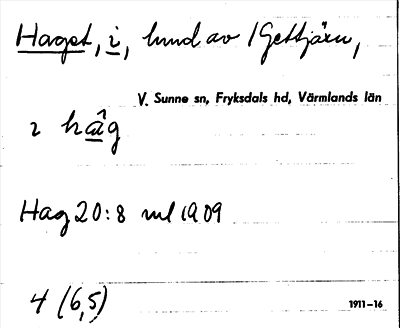 Haget, i, hmd av 1 Gettjärn,
V. Sunne sn, Fryksdals hd, Värmlands län
2 hâg
Hag 20:8 ml 1909
4 (6,5)
1911–16